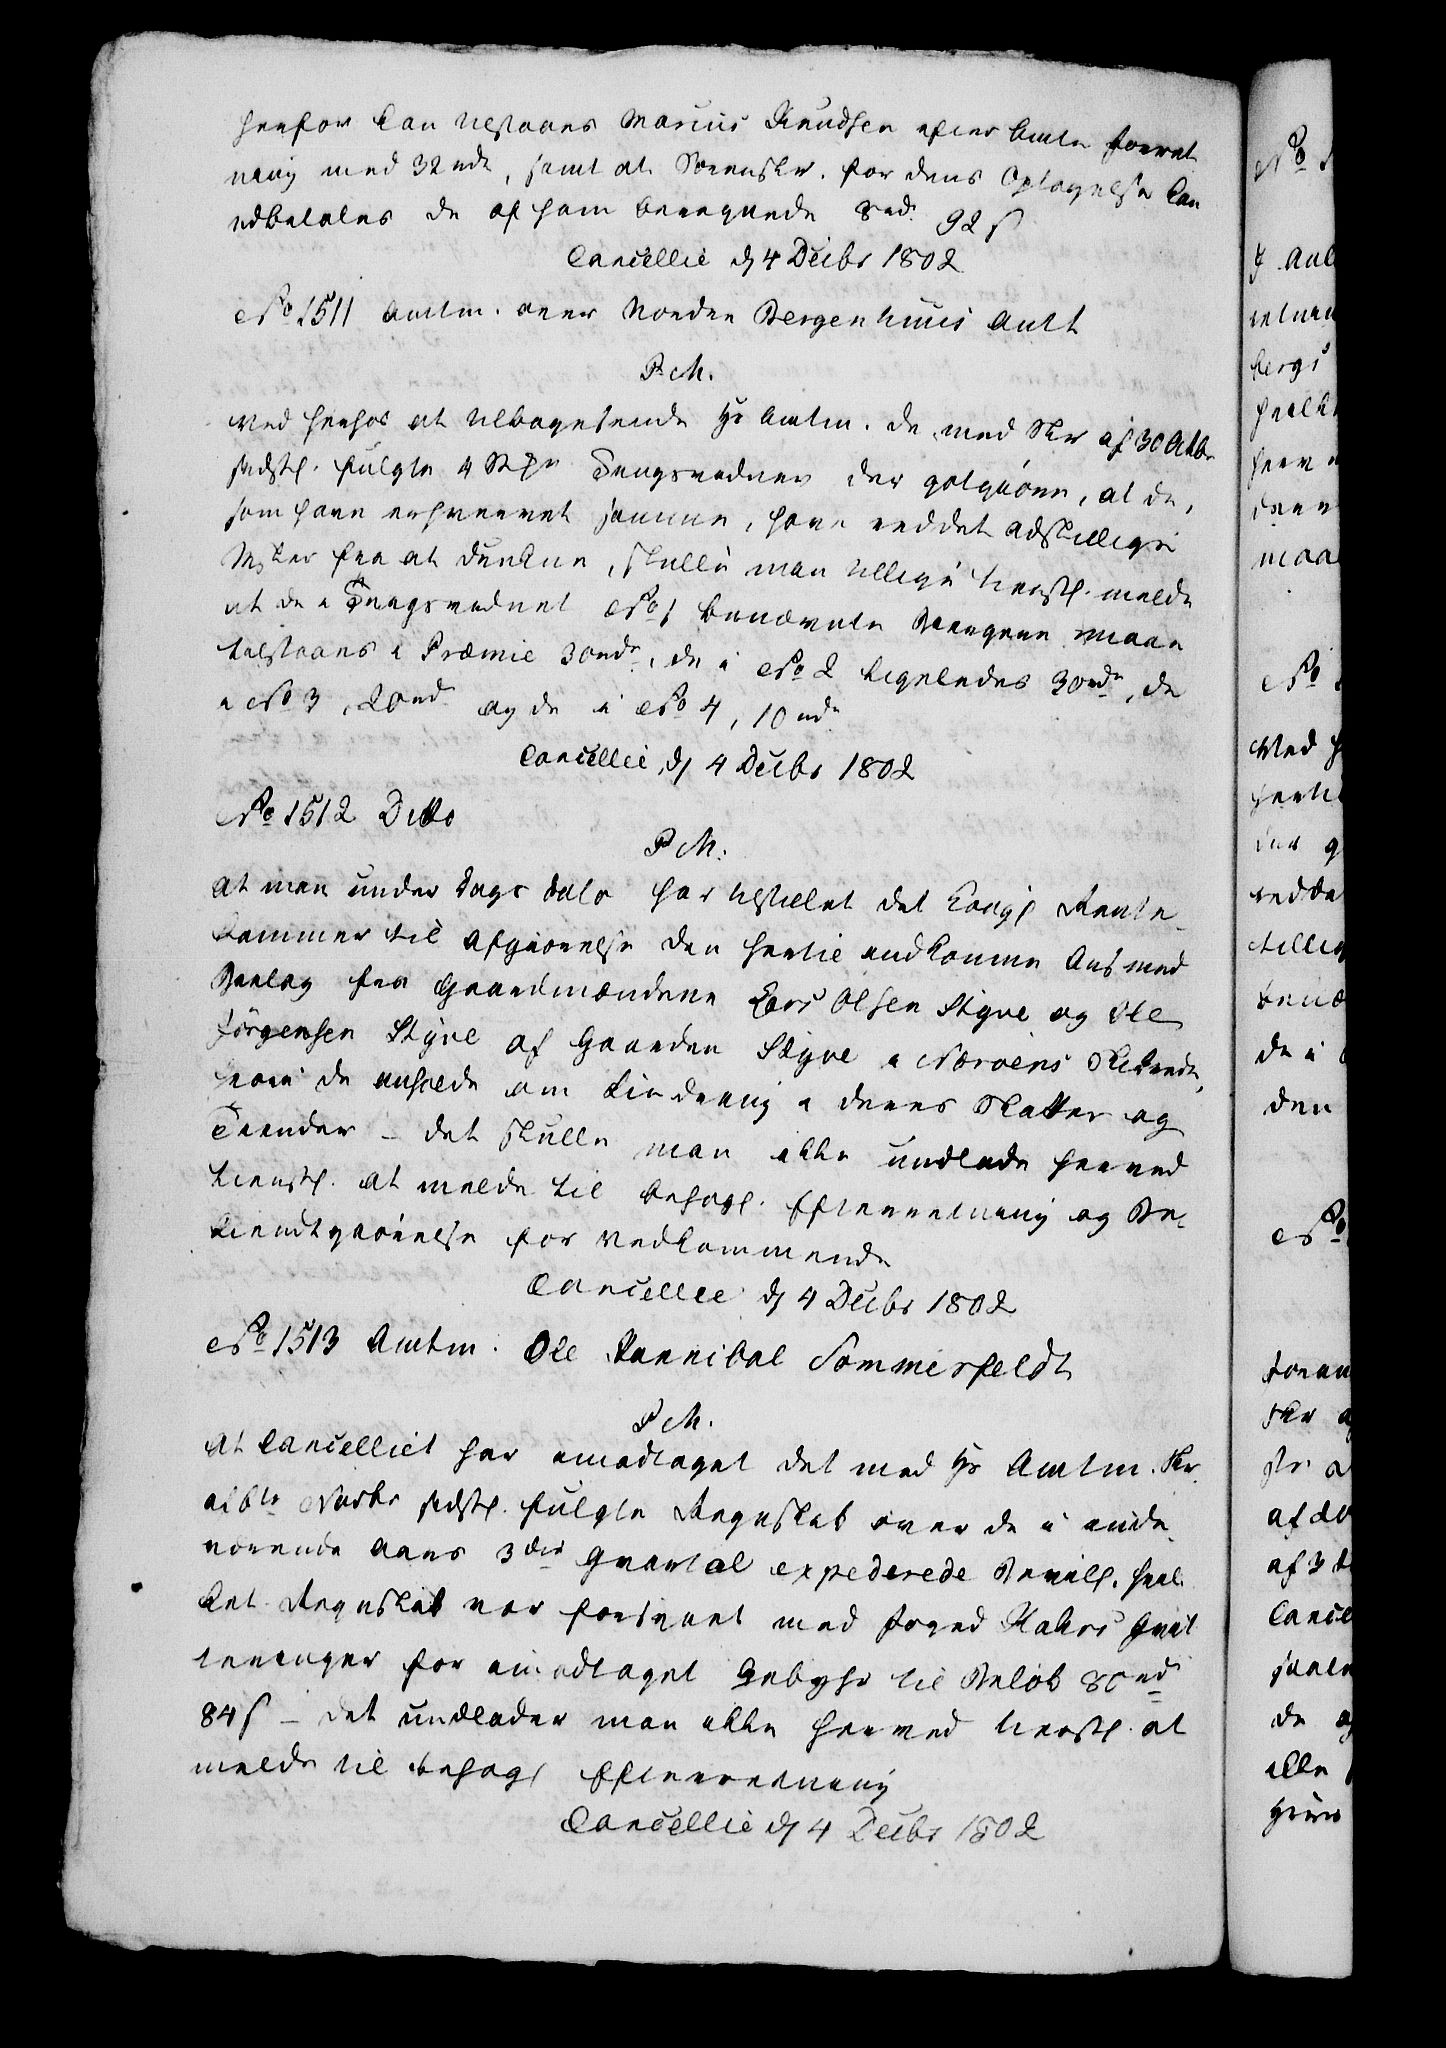 herfor kan tilstaaes Marcus Knudsen efter bem:te Forret
ning med 32 rd, samt at Sorenskr. for dens Optagelse kan
udbetales de af ham beregnede 8 rd. 92 s
Cancellie d 4 Decbr 1802
No 1511 Amtm. over Nordre Bergenhuus Amt
P. M.
Ved herhos at tilbagesende Hr Amtm. de med Skr af 30 Octbr
sidstl. fulgte 4 Stkr Tingsvidner der godtgiøre, at de,
som have erhvervet samme, have reddet adskillige
Msker fra at drukne, skulle man tillige tienstl. melde
at de i Tingsvidnet No 1 benævnte Personer maae
tilstaaes i Præmie 30 rd, de i No 2 ligeledes 30 rd, de
i No 3, 20 rd og de i No 4, 10 rd
Cancellie, d 4 Decbr 1802
No 1512 Ditto
P. M.
At man under Dags Dato har tilstillet det Kongl Rente-
kammer til Afgiørelse den hertil indkomne Ans med
Bielag fra Gaardmændene Lars Olsen Stÿve og Ole
Jörgensen Stÿve af Gaarden Stÿve i Nærøens Skibrede,
hvori de ansøge om Lindring i deres Skatter og
Tiender - det skulle man ikke undlade herved
tienstl. at melde til behagl. Efterretning og Be-
kiendtgiørelse for Vedkommende
Cancellie d 4 Decbr 1802
No 1513 Amtm. Ole Hannibal Sommerfeldt
P. M.
At Cancelliet har imodtaget det med Hr Amtm. Skr
af 6te Novbr sidstl. fulgte Regnskab over de i inde-
værende Aars 3die Qvartal expederede Bevill. hvil-
ket Regnskab var forsynet med Foged Kahrs Qvit
teringer for imodtaget Gebyhr til Beløb 80 rd
84 s - det undlader man ikke herved tienstl. at
melde til behagl Efterretning
Cancellie d 4 Decbr 1802